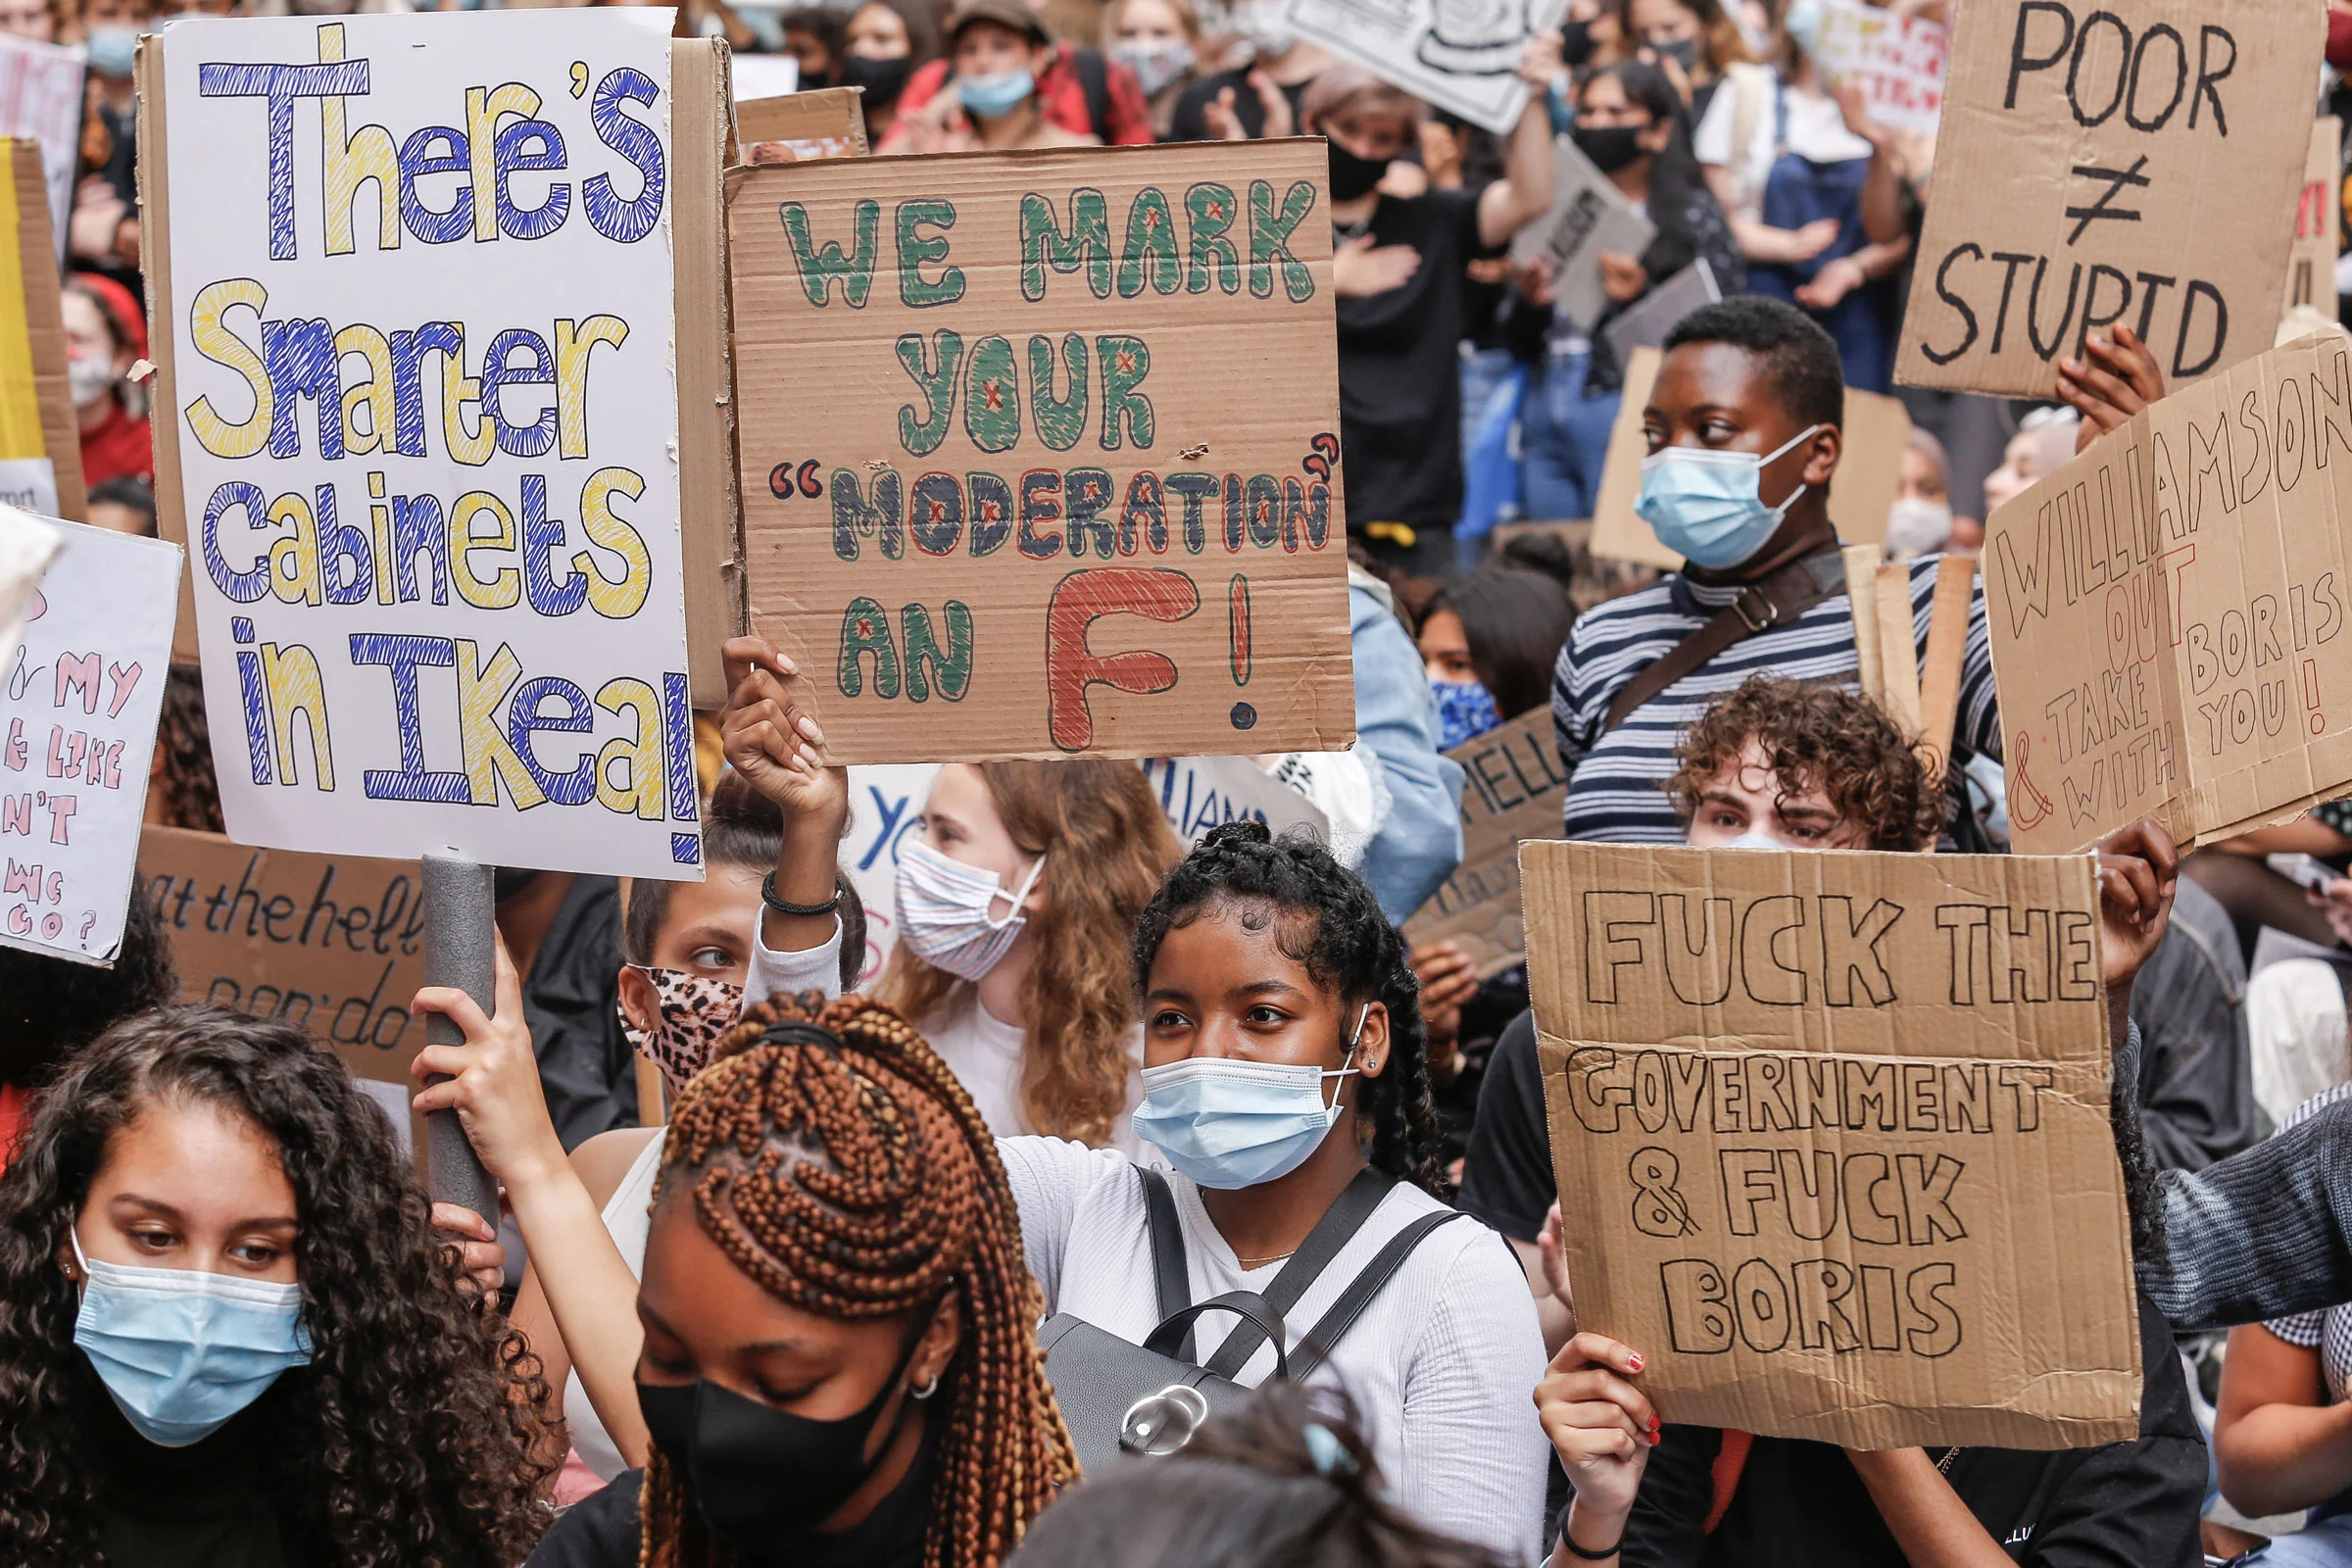 There's
Smarter
Cabinets
in Ikea!
WE MARK
YOUR
“MODERATION”
AN F!
POOR
≠
STUPID
WILLIAMSON
OUT
& TAKE BORIS
WITH YOU!
FUCK THE
GOVERNMENT
& FUCK
BORIS
& MY
LIKE
N'T
WE
GO?
the hell
do